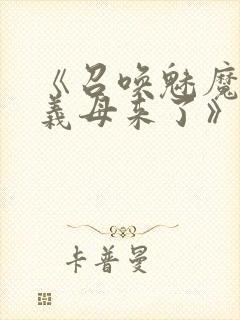 《召唤魅魔
義母来了》
卡普曼